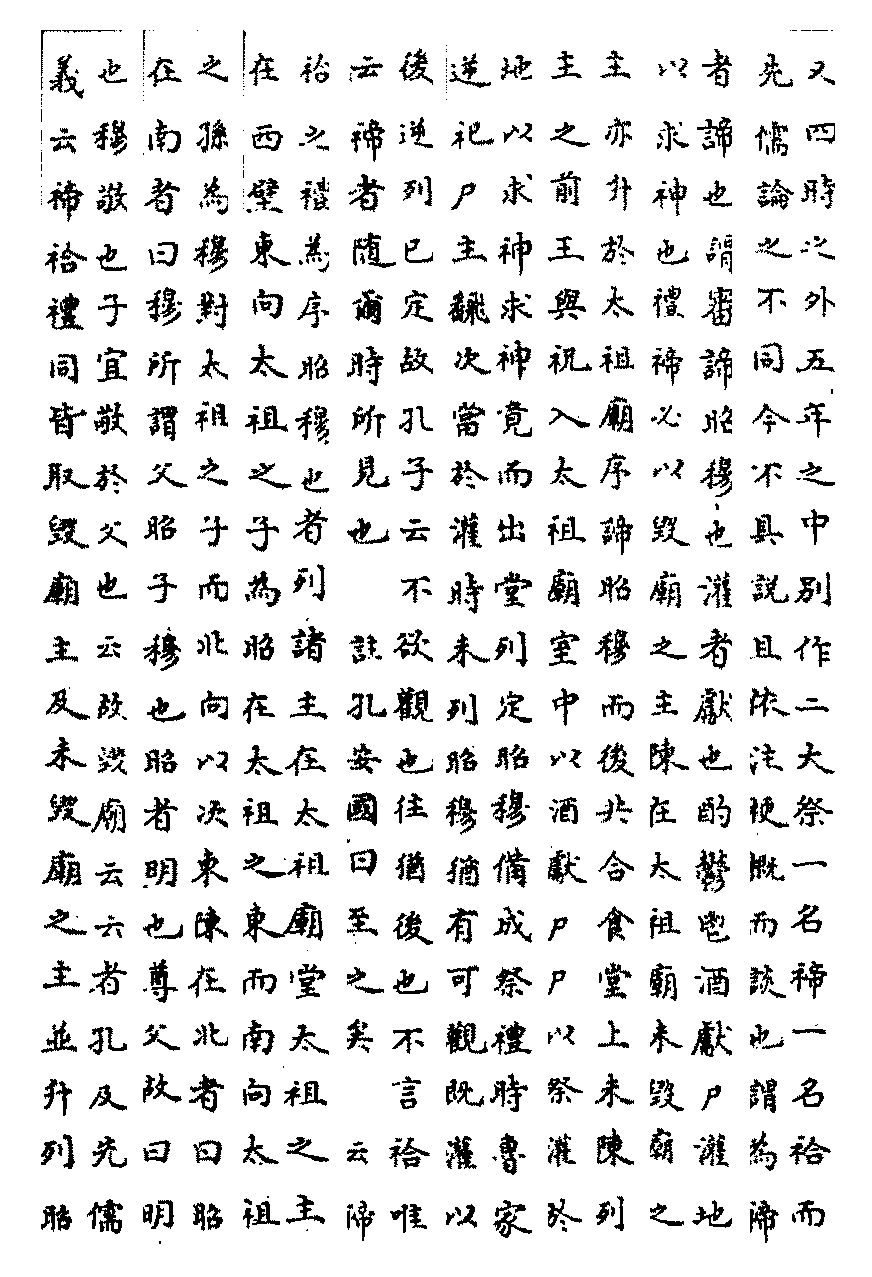 又四時之外五年之中別作二大祭一名禘一名祫而
先儒論之不同今不具説且依注梗概而談也謂為禘
者諦也謂審諦昭穆也灌者獻也酌鬱鬯酒獻尸灌地
以求神也禮禘必以毀廟之主陳在太祖廟未毀廟之
主亦升於太祖廟序諦昭穆而後共合食堂上未陳列
主之前王與祝入太祖廟室中以酒獻尸尸以祭灌於
地以求神求神竟而出堂列定昭穆備成祭禮時魯家
逆祀尸主翻次當於灌時未列昭穆猶有可觀既灌以
後逆列已定故孔子云不欲觀也往猶後也不言祫唯
云禘者隨爾時所見也 註孔安國曰至之矣 云禘
祫之禮為序昭穆也者列諸主在太祖廟堂太祖之主
在西壁東向太祖之子為昭在太祖之東而南向太祖
之孫為穆對太祖之子而北向以次東陳在北者曰昭
在南者曰穆所謂父昭子穆也昭者明也尊父故曰明
也穆敬也子宜敬於父也云故毀廟云云者孔及先儒
義云禘祫禮同皆取毀廟主及未毀廟之主並升列昭